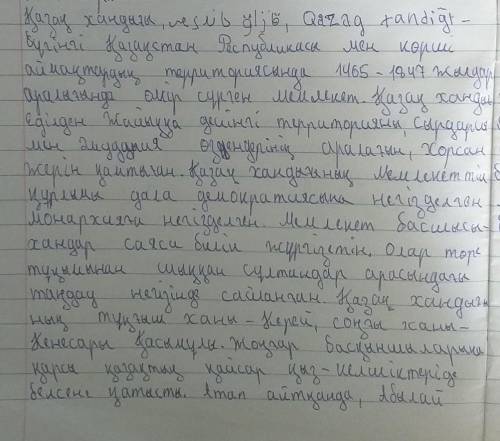 Қазақ хандығы, Qazaq xandığı -
бүгінгі Қазақстан Республикасы мен көрші
аймақтардың территориясында 1465 - 1847 жылдар
аралығында өмір сүрген мемлекет. Қазақ хандығы
Еділден Жайыққа дейінгі территорияны, Сырдария
мен Әмудария өзендерінің аралағын, Хорсан
жерін қамтыған. Қазақ хандығының мемлекеттік
құрлымы дала демократиясына негізделген
монархияға негізделген. Мемлекет басшысы-
хандар саяси билік жүргізетін. Олар төре
тұқымынан шыққан сұлтандар арасындағы
таңдау негізінде сайланған. Қазақ ханды
ның тұңғыш ханы - Керей, соңғы ханы -
Кенесары Қасымұлы. Жоңғар басқыншыларына
қарсы қазақтың қайсар қыз-келіншіктеріде
белсене қатысты. Атап айтқанда, Абылай